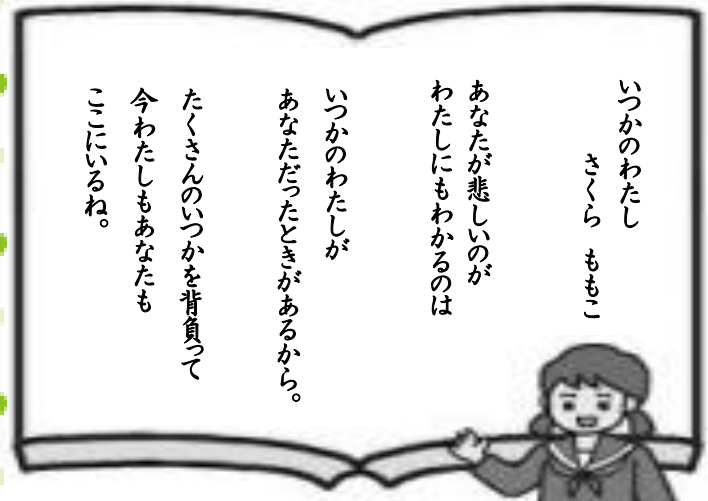 いつかのわたし
さくら ももこ
あなたが悲しいのが
わたしにもわかるのは
いつかのわたしが
あなただったときがあるから。
たくさんのいつかを背負って
今わたしもあなたも
ここにいるね。